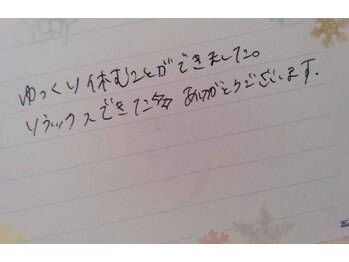 ゆっくり休むことができました。
リラックスできた☆ ありがとうございます.